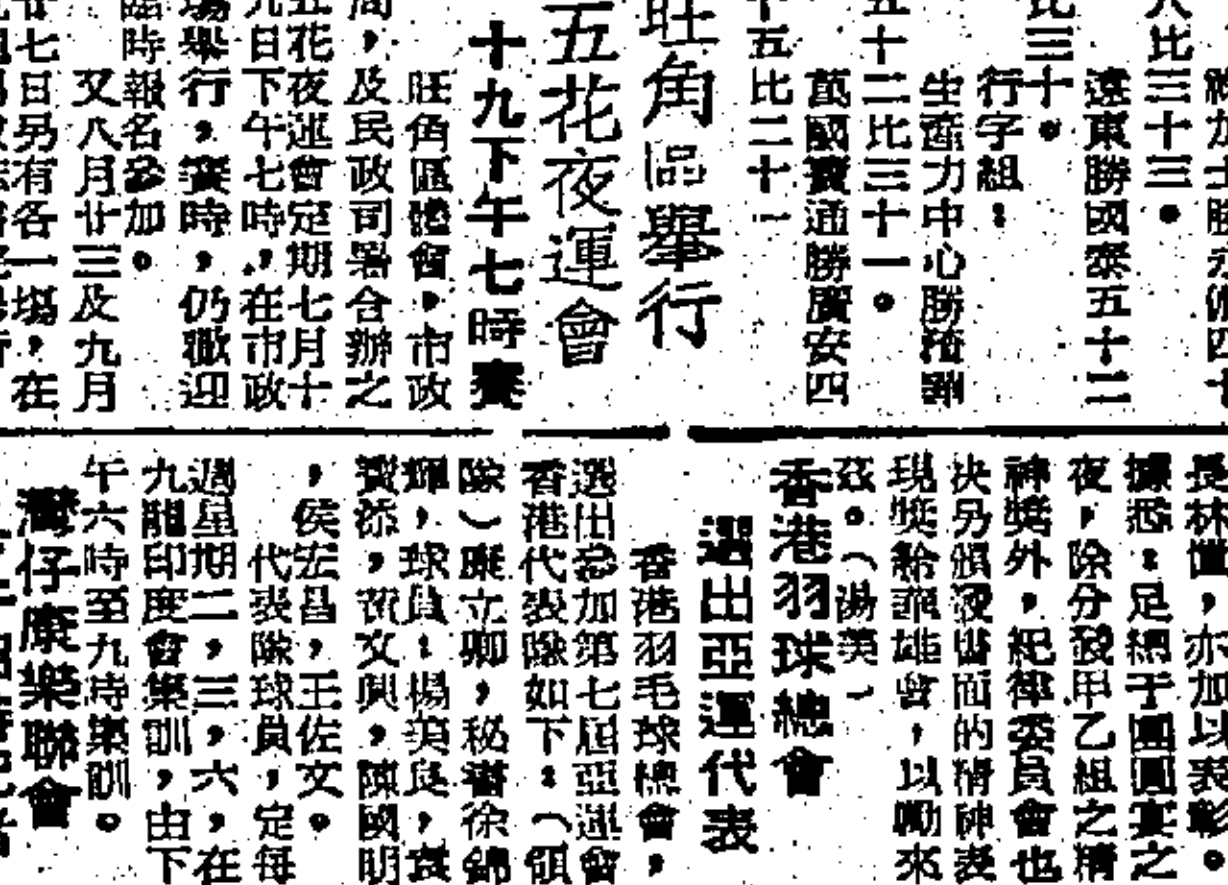 八比三十三。
遠東勝國泰五十二
比三十。
行字組：
生產力中心勝
五十二比三十一。
萬國寶通勝廣安四
十五比二十一
旺角區舉行
五花夜運會
十九下午七時賽
旺角區體會，市政
局，及民政司署合辦之
五花夜運會定期七月十
九日下午七時，在市政
場舉行，賽時，仍歡迎
臨時報名參加。
又八月廿三及九月
廿七日另有各一場，在
長林愷，亦加以表彰。
據悉：足總于團圓宴之
夜，除分發甲乙組之精
神獎外，紀律委員會也
決另頒發書面的精神表
現獎給華雄會，以勵來
茲。（湯美
香港羽球總會
選出亞運代表
香港羽毛球總會，
選出參加第七屆亞運會
香港代表隊如下：（領
隊）陳立卿，秘書徐錦
輝，球員：楊美良，袁
寶添，黃文興，陳國明
，侯宏昌，王佐文。
代表隊球員，定每
週星期二，三，六，在
九龍印度會集訓，由下
午六時至九時集訓。
灣仔康樂聯會